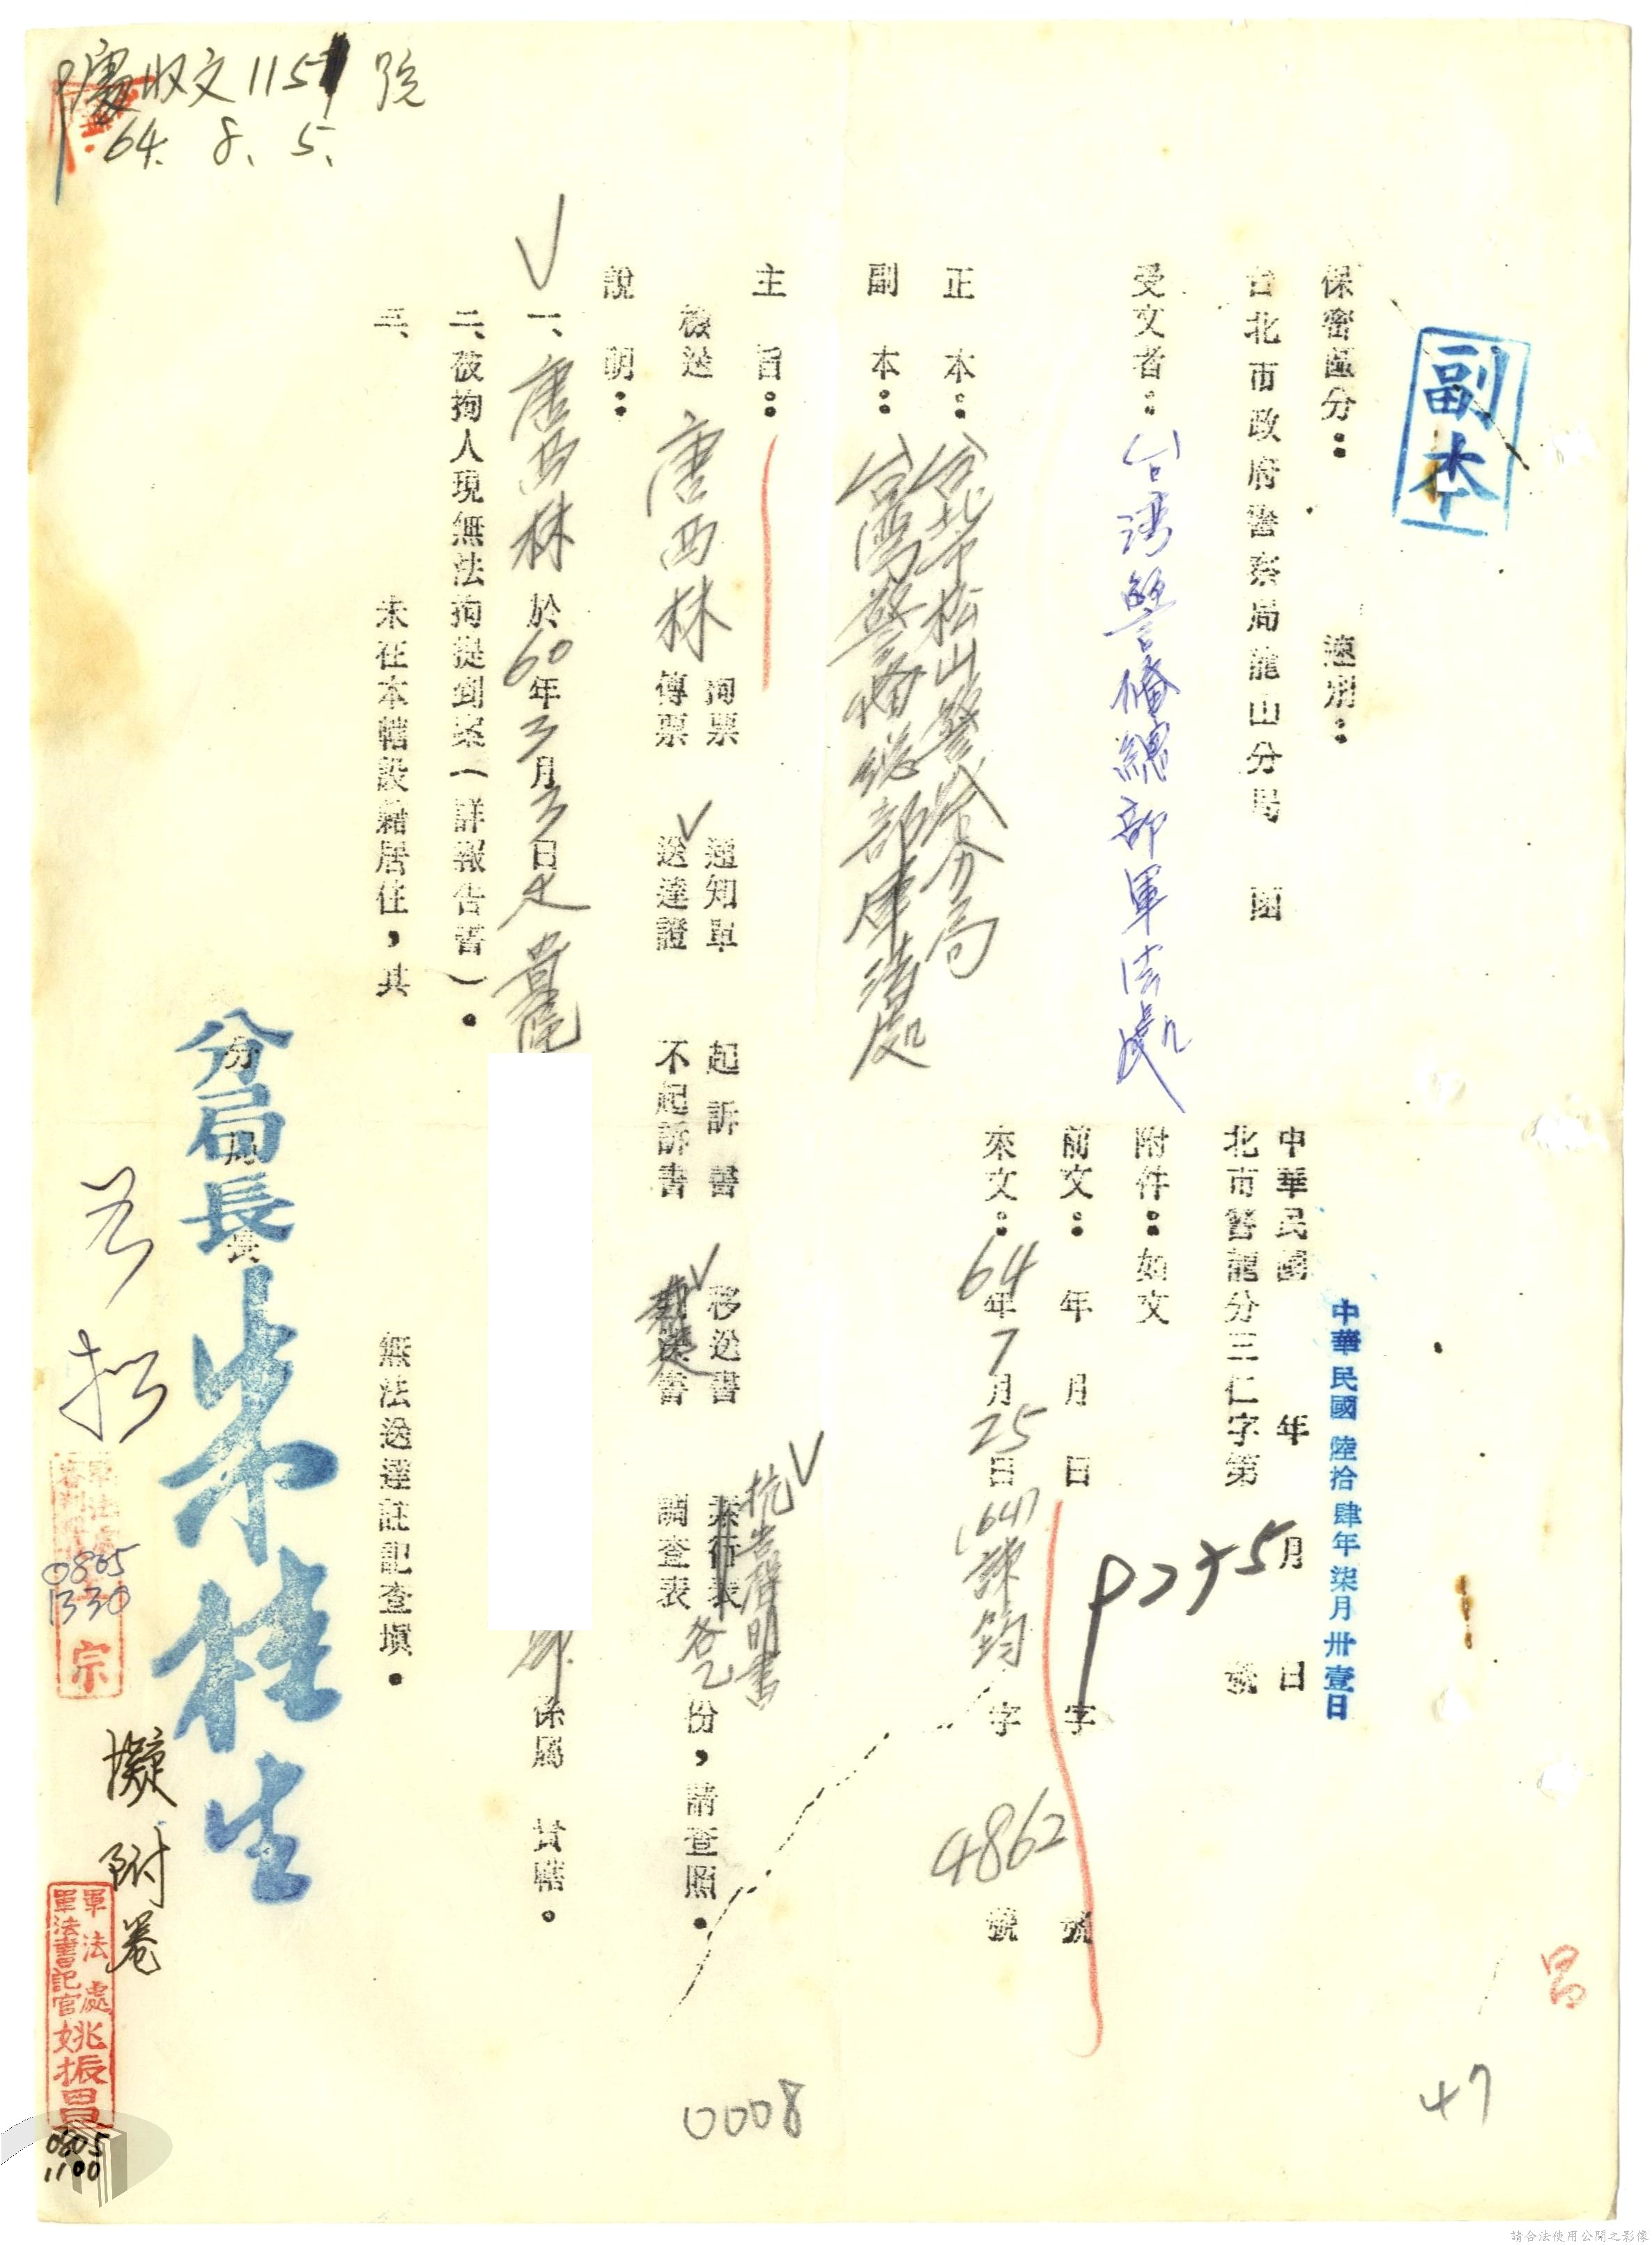 副本
保密區分： 速別：
中華民國陸拾肆年柒月卅壹日
台北市政府警察局龍山分局 函
中華民國 年 月 日
北市警龍分三仁字第 號
受文者：台灣警備總部軍法處
附件：如文
前文： 年 月 日 字 號
來文：64年7月25日(64)諫鈞字4862號
正本：台北市松山警察分局
副本：台灣警備總部軍法處
主旨：
檢送 唐西林
拘票 通知單 起訴書 移送書 素行表
傳票 送達證 不起訴書 調查表
抗告聲明書
份，請查照。
說明：
一、唐西林於60年3月3日
係屬 貴轄。
二、被拘人現無法拘提到案（詳報告書）。
三、 未在本轄設籍居住，其 無法送達註記查填。
分局長
分局長 朱桂生
收文115 號
64. 8. 5.
宗
0805
1330
擬附卷
軍法處
軍法書記官
姚振昌
0805
1100
0008
47
請合法使用公開之影像